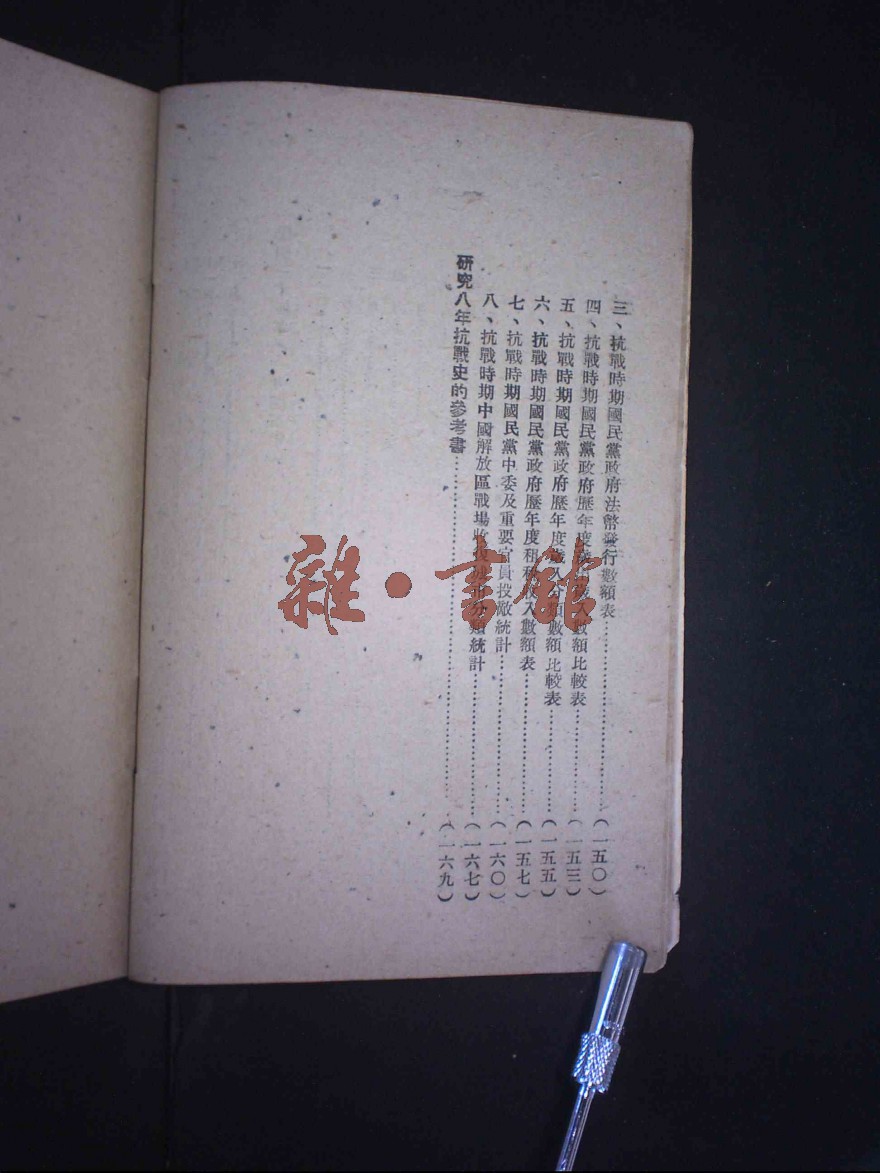 三、抗戰時期國民黨政府法幣發行數額表……(一五〇)
四、抗戰時期國民黨政府歷年度歲出歲入數額比較表……(一五三)
五、抗戰時期國民黨政府歷年度歲入分類數額比較表……(一五五)
六、抗戰時期國民黨政府歷年度租稅收入數額表……(一五七)
七、抗戰時期國民黨中委及重要官員投敵統計……(一六〇)
八、抗戰時期中國解放區戰場收復城市分類統計……(一六七)
研究八年抗戰史的參考書……(一六九)
雜·書館